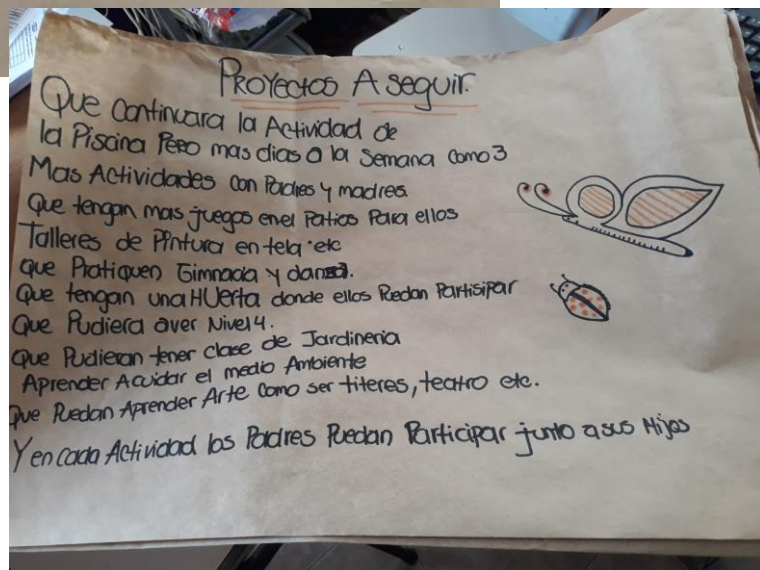 Proyectos A seguir.
Que Continuara la Actividad de
la Piscina Pero mas dias a la Semana como 3
Mas Actividades con Padres y madres
Que tengan mas juegos en el Patios Para ellos
Talleres de Pintura en tela etc
que Pratiquen Gimnacia y danza.
Que tengan una Huerta donde ellos Puedan Partisipar
Que Pudiera aver Nivel 4.
Que Pudieran tener clase de Jardineria
Aprender A cuidar el medio Ambiente
Que Puedan Aprender Arte como ser titeres, teatro etc.
Y en cada Actividad los Padres Puedan Participar junto a sus Hijos